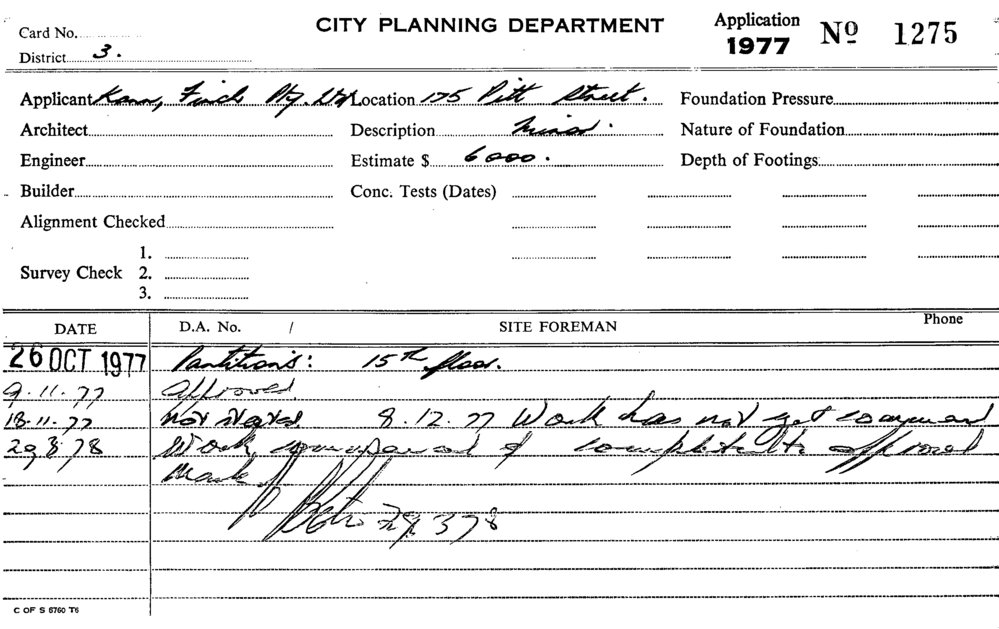 CITY PLANNING DEPARTMENT
Application
1977 Nº 1275
Card No.
District 3.
Applicant Kann, Finch Pty. Ltd Location 175 Pitt Street. Foundation Pressure
Architect Description Minor. Nature of Foundation
Engineer Estimate $ 6000. Depth of Footings
Builder Conc. Tests (Dates)
Alignment Checked
Survey Check 1.
2.
3.
DATE D.A. No. / SITE FOREMAN Phone
26 OCT 1977 Partitions: 15th floor.
9.11.77 Approved.
18.11.77 Not started. 8.12.77 Work has not yet commenced
29 3 78 Work commenced & completed to approved
29 3 78
C OF S 6760 T6